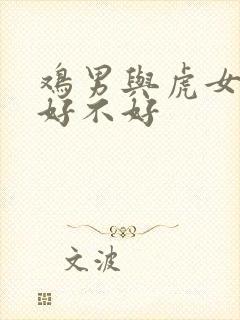 鸡男與虎女
好不好
文波